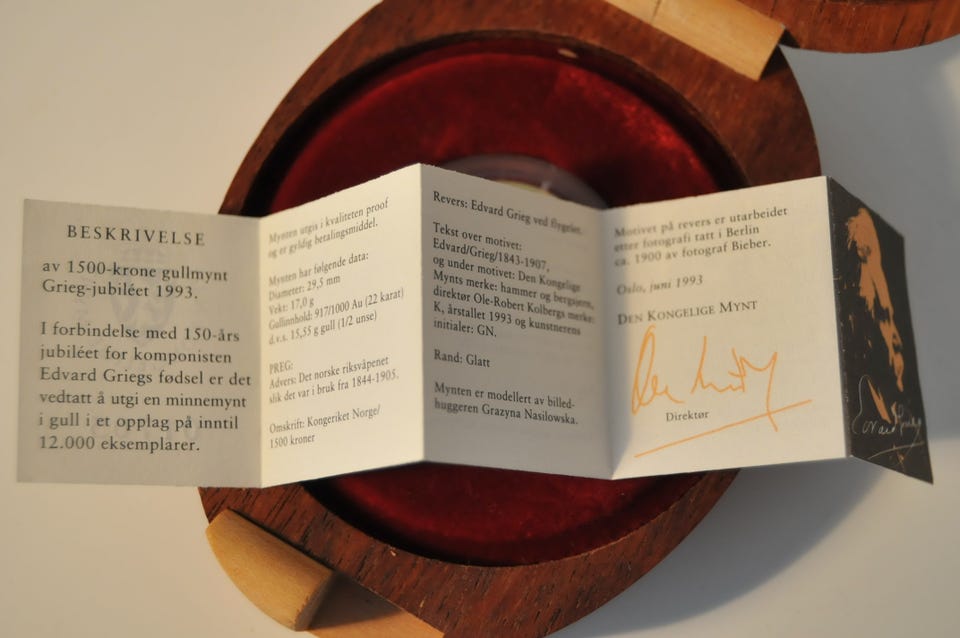 BESKRIVELSE
av 1500-krone gullmynt
Grieg-jubiléet 1993.
I forbindelse med 150-års
jubiléet for komponisten
Edvard Griegs fødsel er det
vedtatt å utgi en minnemynt
i gull i et opplag på inntil
12.000 eksemplarer.
Mynten utgis i kvaliteten proof
og er gyldig betalingsmiddel.
Mynten har følgende data:
Diameter: 29,5 mm
Vekt: 17,0 g
Gullinnhold: 917/1000 Au (22 karat)
d.v.s. 15,55 g gull (1/2 unse)
PREG:
Advers: Det norske riksvåpenet
slik det var i bruk fra 1844-1905.
Omskrift: Kongeriket Norge/
1500 kroner
Revers: Edvard Grieg ved flygelet.
Tekst over motivet:
Edvard/Grieg/1843-1907,
og under motivet: Den Kongelige
Mynts merke: hammer og bergsjern,
direktør Ole-Robert Kolbergs merke:
K, årstallet 1993 og kunstnerens
initialer: GN.
Rand: Glatt
Mynten er modellert av billed-
huggeren Grazyna Nasilowska.
Motivet på revers er utarbeidet
etter fotografi tatt i Berlin
ca. 1900 av fotograf Bieber.
Oslo, juni 1993
DEN KONGELIGE MYNT
Direktør
Edvard Grieg